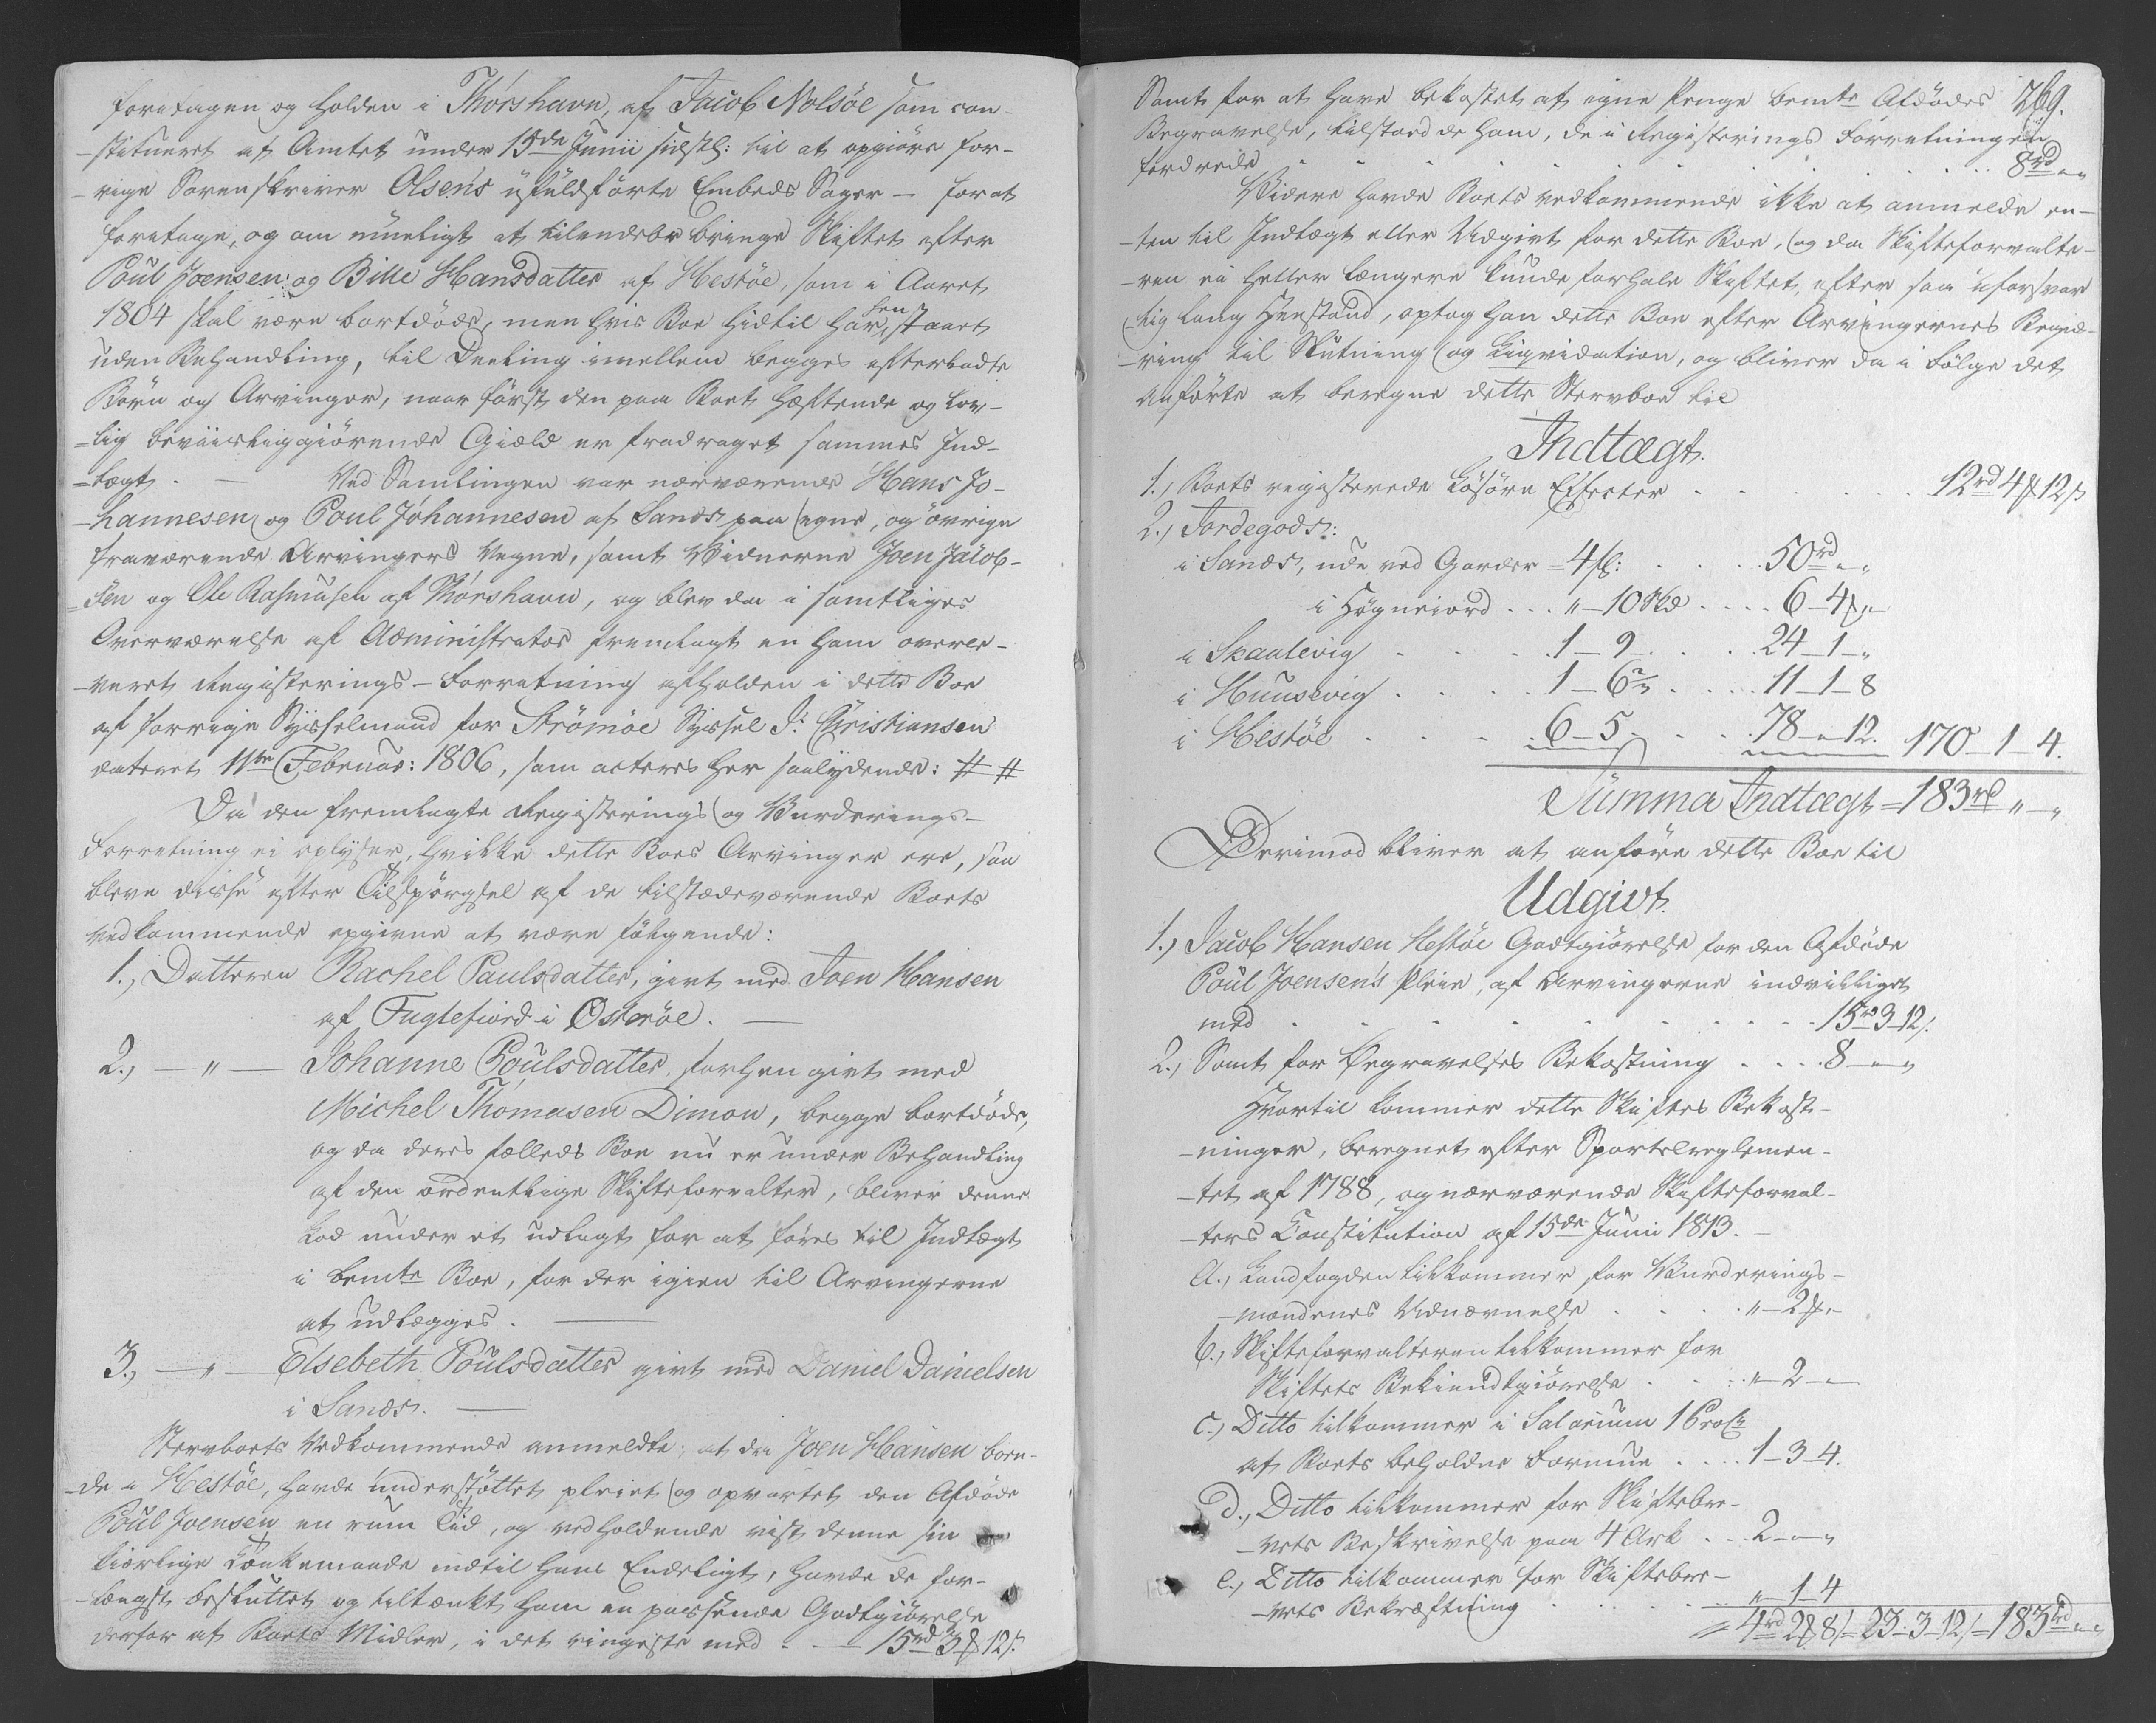 foretagen og holden i Thorshavn, af Jacob Nolsöe som con-
-stitueret af Amtet under 15de Junii sidstl: til at opgiöre for-
-rige Sorenskriver Olsens ufuldförte Embeds Sager – forat
foretage, og om mueligt at tilendebr bringe Skiftet efter
Poul Joensen og Bille Hansdatter af Hestöe, som i Aaret
1804 skal være bortdöde, men hvis Boe hidtil har hen staaet
uden Behandling, til Deeling imellem begges efterladte
Börn og Arvinger, naar först den paa Boet hæftende og lov-
-lig beviisliggiörende Giæld er fradraget sammes Ind-
-tægt. – Ved Samlingen var nærværende Hans Jo-
-hannesen og Poul Johannesen af Sands paa egne, og övrige
fraværende Arvingers Vegne, samt Vidnerne Joen Jacob-
-sen og Ole Rasmusen af Thorshavn, og blev da i samtliges
Overværelse af Administrator fremlagt en ham overle-
-veret Registerings-Forretning afholden i dette Boe
af forrige Sysselmand for Strömöe Syssel J: Christiansen
dateret 11te Februar: 1806, som acteres her saalydende: # #
Da den fremlagte Registerings og Vurderings-
Forretning ei oplyser, hvilke dette Boes Arvinger ere, saa
bleve disse efter Tilspörgsel af de tilstædeværende Boets
vedkommende opgivne at være fölgende:
1., Datteren Rachel Paulsdatter, givt med Joen Hansen
af Fuglefiord i Österöe. —
2., — " — Johanne Poulsdatter, forhen givt med
Michel Thomasen Dimon, begge bortdöde,
og da deres fælleds Boe nu er under Behandling
af den ordentlige Skifteforvalter, bliver denne
Lod under et udlagt for at föres til Indtægt
i bemte Boe, for der igien til Arvingerne
at udlægges. —
3., — " — Elsebeth Poulsdatter givt med Daniel Danielsen
i Sands. —
Stervboets Vedkommende anmeldte, at da Joen Hansen boen-
-de i Hestöe, havde understöttet pleiet og opvartet den Afdöde
Poul Joensen en rum Tid, og vedholdende vist denne sin
kiærlige Tænkemaade indtil hans Endeligt, havde de for-
-længst besluttet og tiltænkt ham en passende Godtgiörelse
derfor af Boets Midler, i det ringeste med . — 15rd 3 12
269.
Samt for at have bekostet af egne Penge bemte Afdödes
Begravelse, tilstoed de ham, de i Registerings Forretningen
fordrede . . . . . . . 8rd " "
Videre havde Boets vedkommende ikke at anmelde en-
-ten til Indtægt eller Udgivt for dette Boe, og da Skifteforvalte-
-ren ei heller længere kunde forhale Skiftet, efter saa uforsvar
lig lang Henstand, optog han dette Boe efter Arvingernes Begiæ-
-ring til Slutning og Liqvidation, og bliver da i Fölge det
Anförte at beregne dette Stervboe til
Indtægt.
1., Boets registerede Lösöre Effecter . . . . . 12rd 4 12
2., Jordegods:
i Sands, ude ved Garder – 4 . . . 50rd " "
i Högneiord . . . " – 10 . . . . 6 – 4 "
i Skaalevig . . . . 1 – 9 . . . . 24 – 1 – "
i Huusevig . . . . 1 – 6 . . . . 11 – 1 – 8
i Hestöe . . . . 6 – 5 . . . . 78 – " – 12. 170 – 1 – 4.
Summa Indtægt = 183rd " – "
Derimod bliver at anföre dette Boe til
Udgivt.
1., Jacob Hansen Hestöe Godtgiörelse for den Afdöde
Poul Joensen's Pleie, af Arvingerne indvilliget
med . . . . . . . . 15rd 3 12
2., Samt for Begravelses Bekostning . . . . 8 – " – "
Hvortil kommer dette Skiftes Bekost-
-ninger, beregnet efter Sportelreglemen-
-tet af 1788, og nærværende Skifteforval-
-ters Constitution af 15de Junii 1813. –
a., Landfogden tilkommer for Vurderings-
-mændenes Udnævnelse . . . . " – 2 "
b., Skifteforvalteren tilkommer for
Skiftets Bekiendtgiörelse . . . . " – 2 – "
c., Ditto tilkommer i Salarium 1 Proct
af Boets beholdne Formue . . . . 1 – 3 – 4.
d., Ditto tilkommer for Skiftebre-
-vets Beskrivelse paa 4 Ark . . . 2 – " – "
e., Ditto tilkommer for Skiftebre-
-vets Bekræftning . . . . . " – 1 – 4
= 4rd 2 8 = 23 – 3 – 12 = 183rd " "